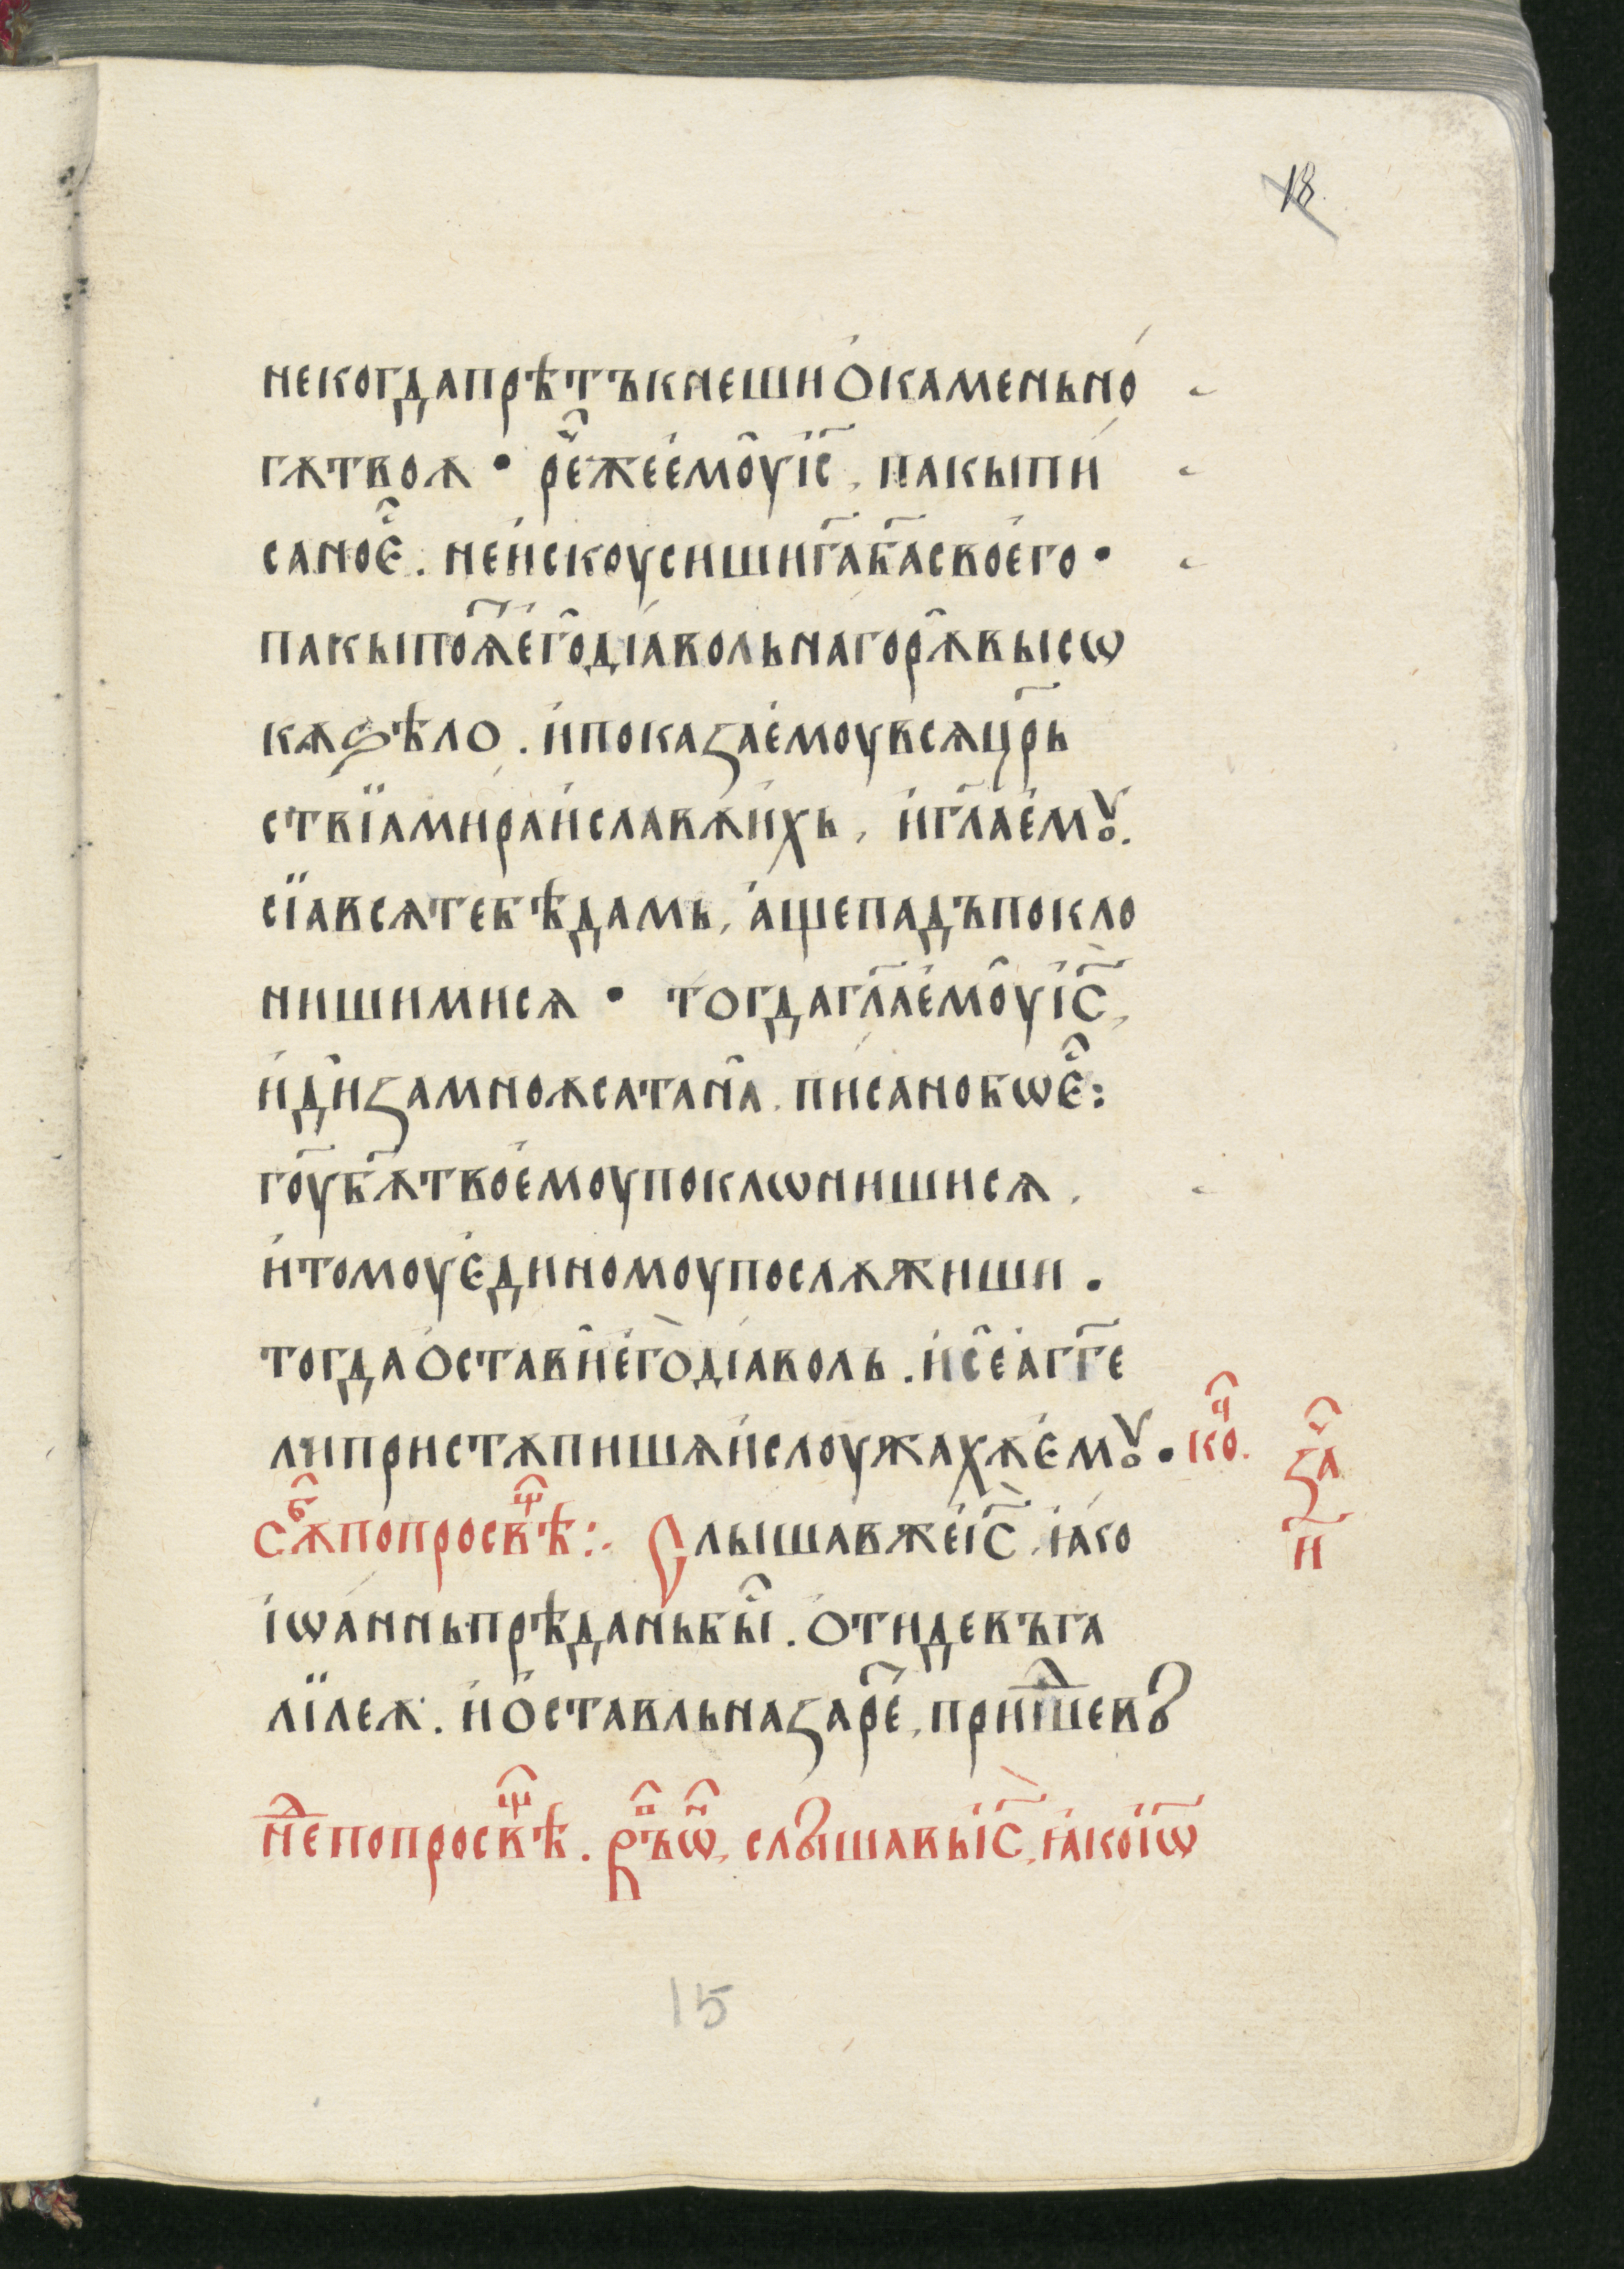 18
некогдапрѣтъкнешиѻ҆каменьно́
гѫтвоѧ • ре҆ⷱ҇жее҆мо̑уі҆с҃, пакыпи́
саное҆ⷭ҇. неи҆скоусишиг҃аб҃асвое҆го •
пакыпоѧ҃е҆го̑дїа́вольнагорѫ̑высѡ
кѫѕѣло. и҆показае҆моувсѧцр҃ь
ствїамира́и҆славѫи҆хь, и҆гл҃ае҆мꙋ.
сїавсѧтебѣдамь, а҆щепадъпокло
нишимисѧ • тогдагл҃ае҆мо̑уі҆с҃,
и҆ди̑замноѧсатана̑. пи́санобѡе҆ⷭ҇:
гоу҃бѫ҃твое҆моупоклѡнишисѧ,
и҆томоуе҆диномоупослѫжиши.
тогдаѻ҆стави̑е҆го̀дїа́воль. и҆се̑а҆гг҃е
липристѫпишѧи҆слоужахѫе҆мꙋ. коⷱ҇.
сѫⷠ҇попросвⷳ҇ѣ:· Слышавжеі҆с҃, ꙗ҆ко
заⷱ҇
и҃
і҆ѡа́нньпрѣданьбы̑. ѻ҆тидевъга
лїлеѫ. и҆ѻ҆ставльназаре҃, прише́вꙋ
неⷣ҇попросвⷳ҇ѣ. р҃ъѡⷩ҇, слꙋшавьі҆с҃, ꙗ҆коі҆ѡ҃
15